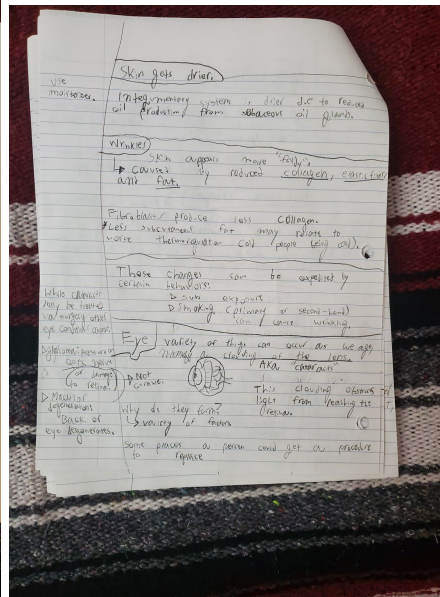 Skin gets drier.
use
moisturizer.
Integumentary system, drier due to reduced
oil production from sebaceous oil glands.
Wrinkles
skin appears more "foldy".
↳ caused by reduced collagen, elastic fibers
and fat.
Fibroblasts produce less collagen.
Less subcutaneous fat may relate to
worse thermoregulation (old people being cold).
These changes can be expedited by
certain behaviors:
▷ sun exposure
▷ smoking (primary or second-hand)
can cause wrinkling.
While cataracts
may be treated
via surgery other
eye conditions cannot:
Eye
variety of things can occur as we age
namely a clouding of the lens.
AKA "cataracts"
optic nerve
or damage
to retina
▷ Not
This clouding obstructs
light from reaching the
retina.
▷ Macular
degeneration
Back of
eye degenerates.
Why do they form?
↳ variety of factors
Some places a person could get a procedure
to replace